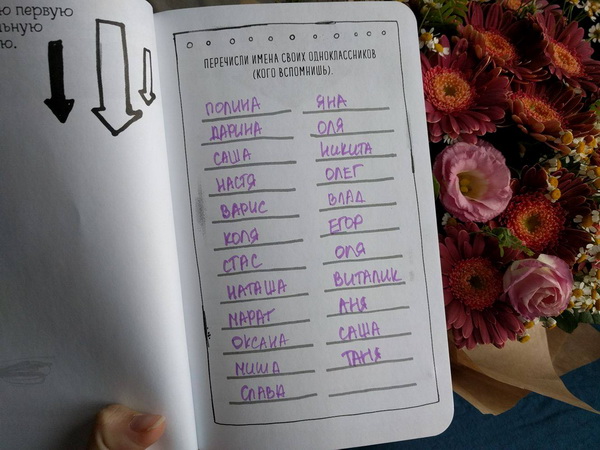 ю первую
льную
ю.
ПЕРЕЧИСЛИ ИМЕНА СВОИХ ОДНОКЛАССНИКОВ
(КОГО ВСПОМНИШЬ).
ПОЛИНА
ДАРИНА
САША
НАСТЯ
ВАРИС
КОЛЯ
СТАС
НАТАША
МАРАТ
ОКСАНА
МИША
СЛАВА
ЯНА
ОЛЯ
НИКИТА
ОЛЕГ
ВЛАД
ЕГОР
ОЛЯ
ВИТАЛИК
АНЯ
САША
ТАНЯ